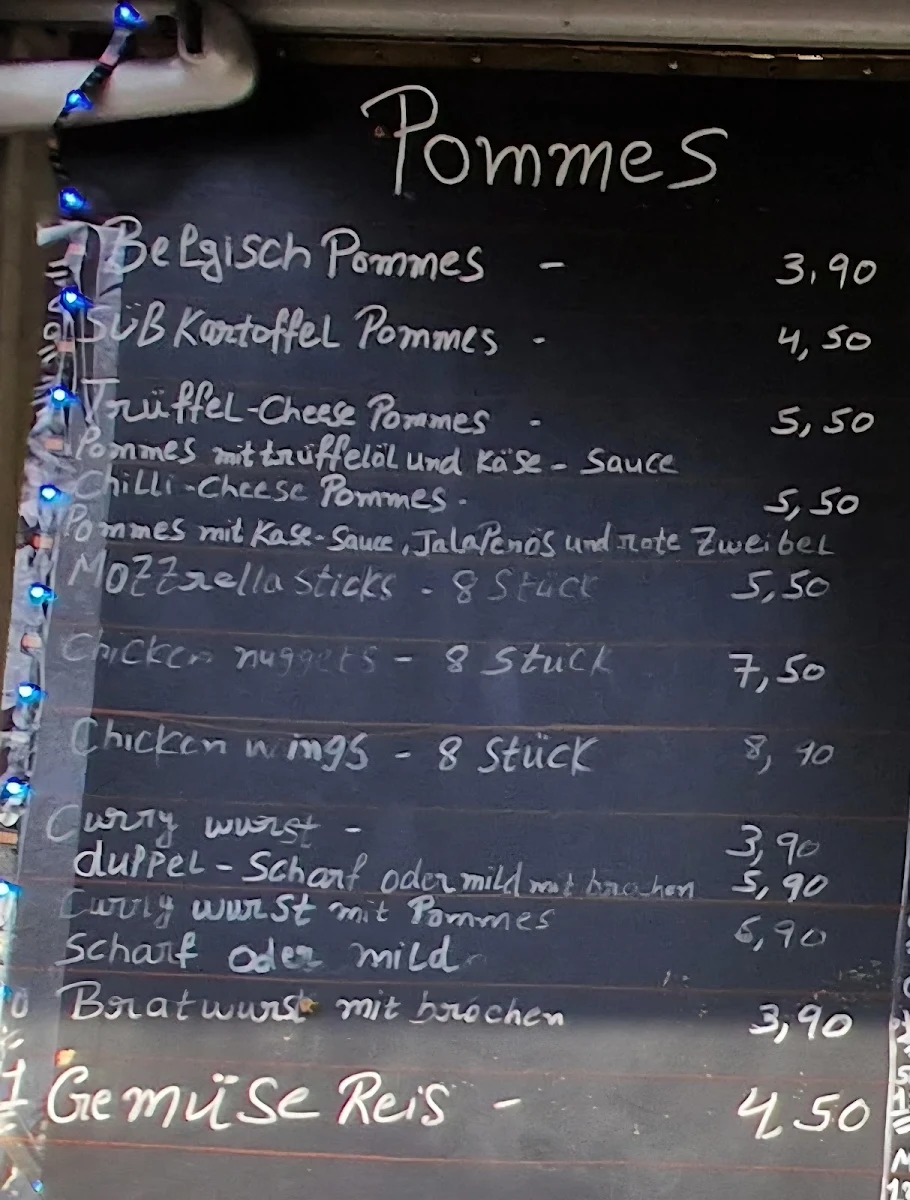 Pommes
Belgisch Pommes - 3,90
SÜß Kartoffel Pommes - 4,50
Trüffel-Cheese Pommes - 5,50
Pommes mit trüffelöl und Käse - Sauce
Chilli-Cheese Pommes - 5,50
Pommes mit Kase-Sauce, JalaPenös und rote Zweibel
Mozzrella sticks - 8 Stück 5,50
Chicken nuggets - 8 Stück 7,50
Chicken wings - 8 Stück 8,90
Curry wurst - 3,90
duppel - Scharf oder mild mit brochen 5,90
Curry wurst mit Pommes 6,90
Scharf oder mild
Bratwurst mit bröchen 3,90
Gemüse Reis - 4,50